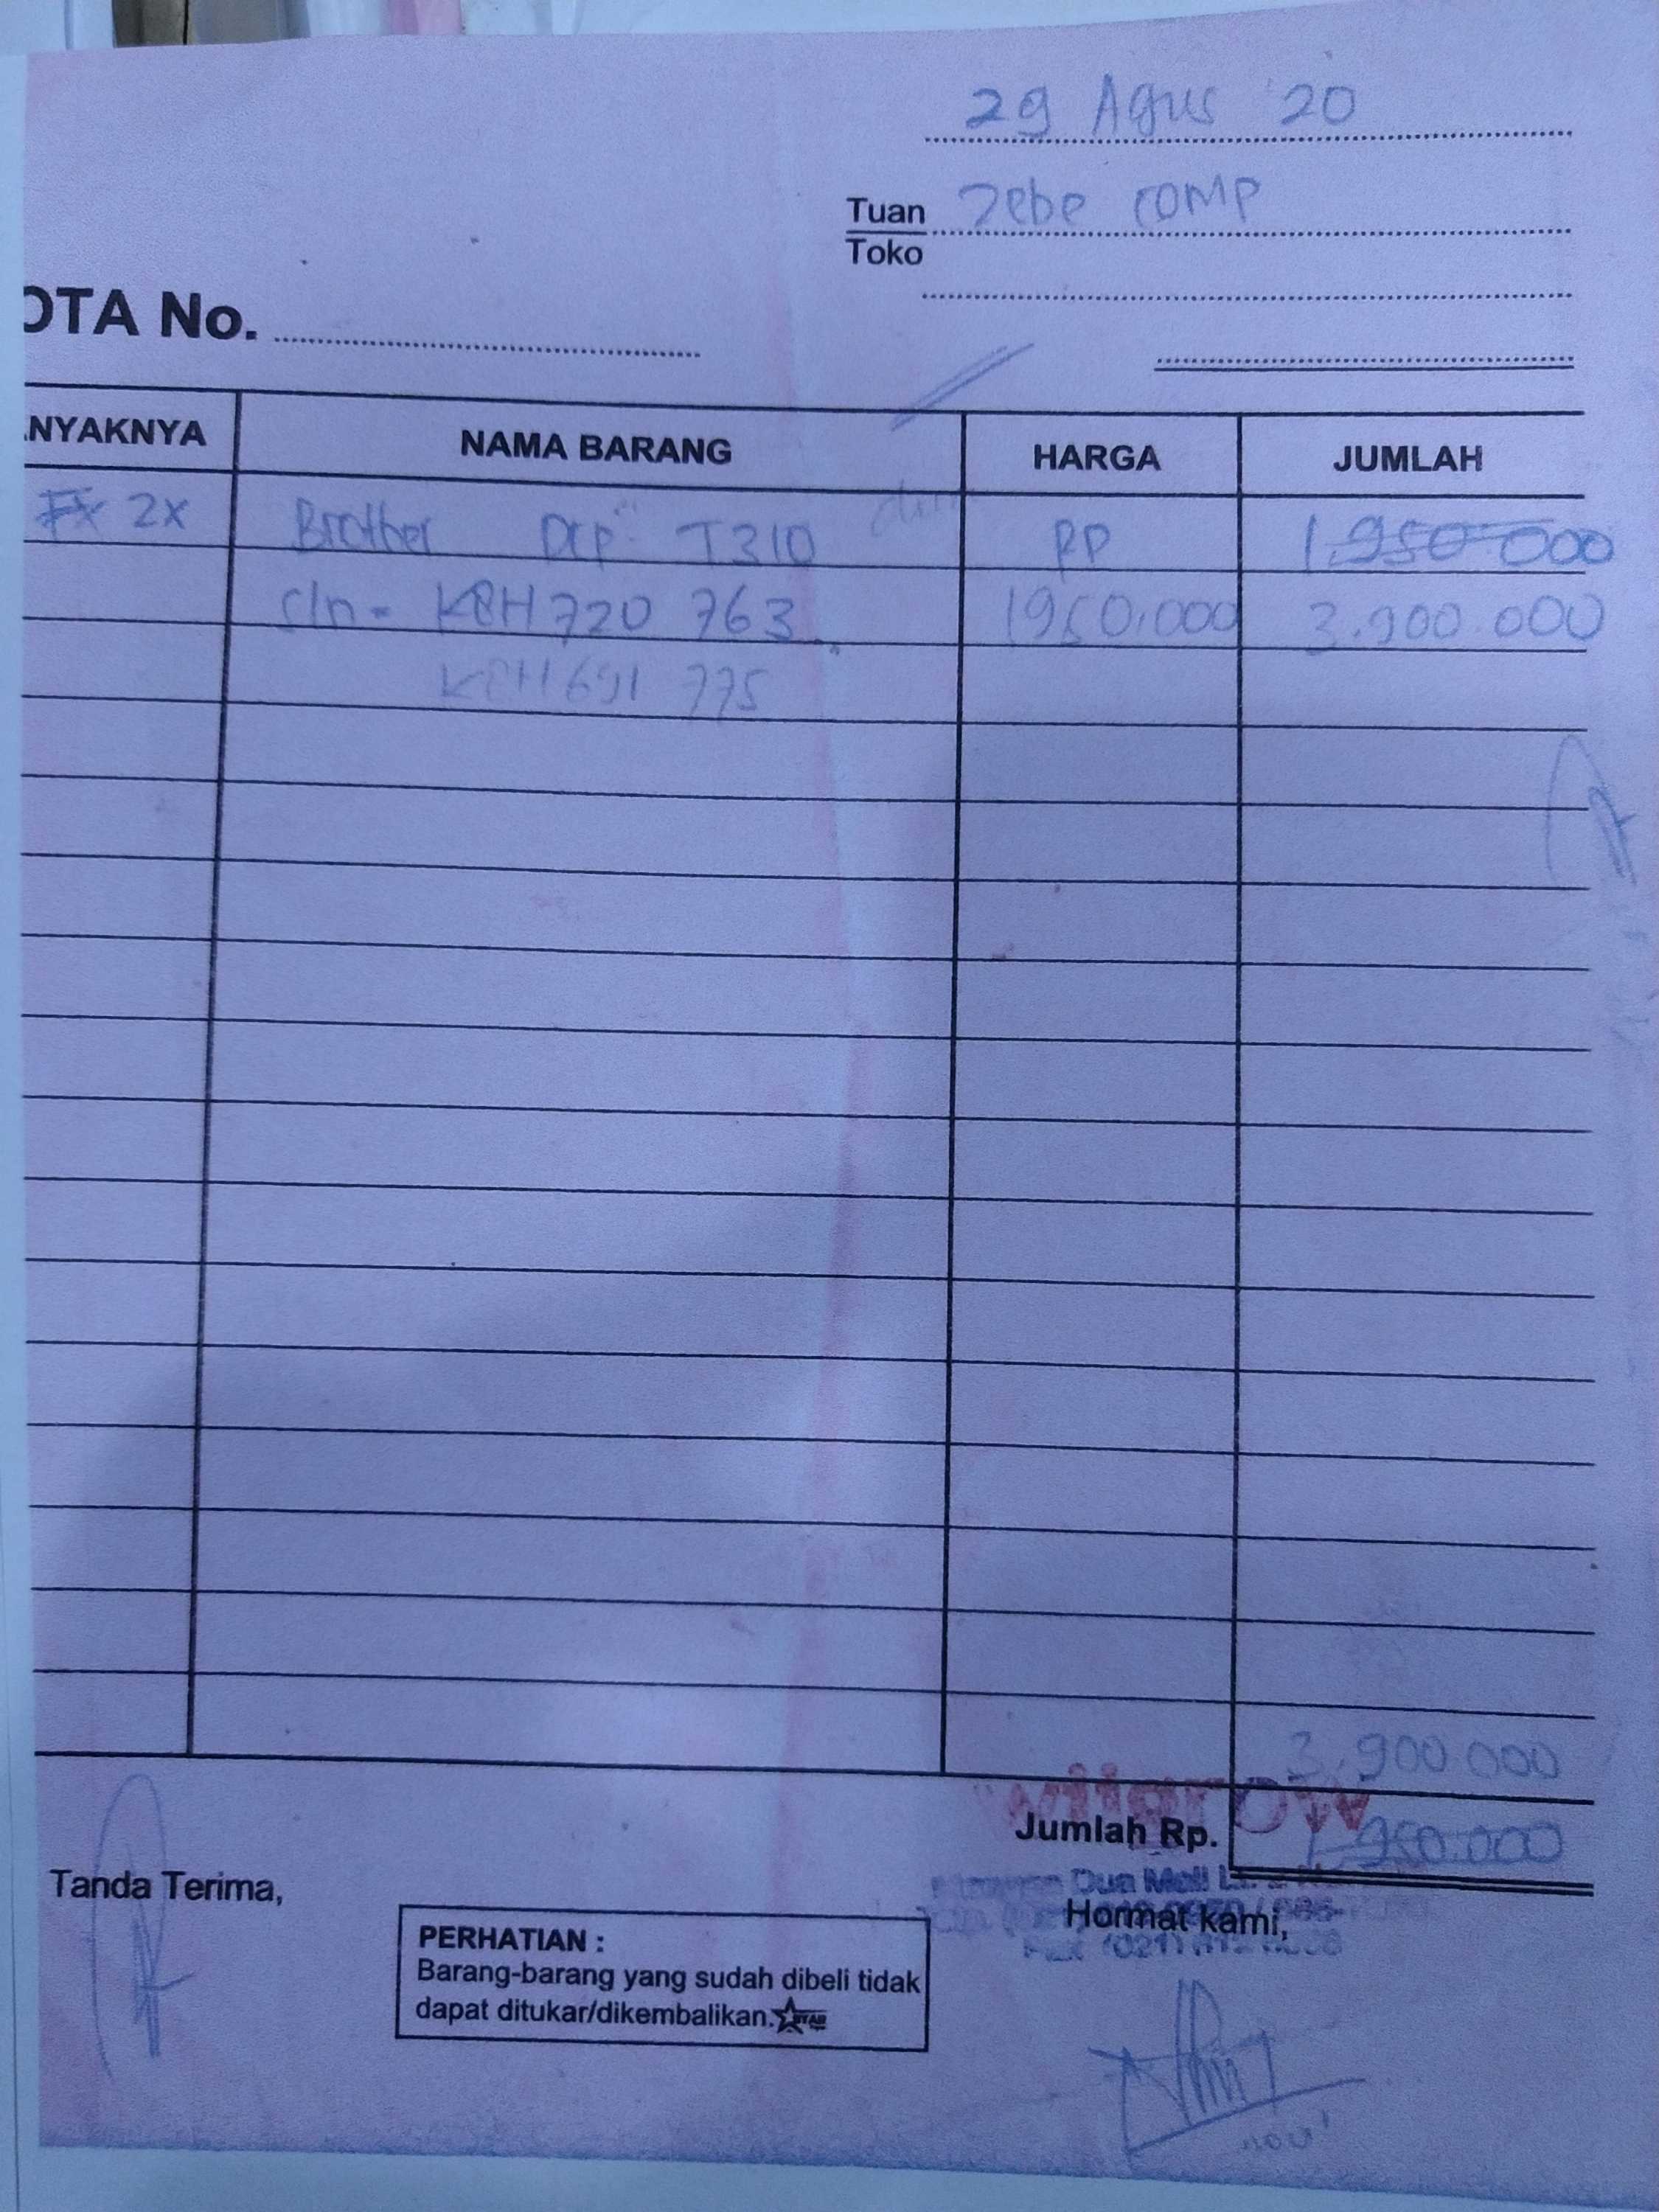 29 Agus '20
Tuan Jebe comp
Toko
OTA No.
NYAKNYA NAMA BARANG HARGA JUMLAH
2x Brother Dcp T310 RP 1.950.000
s/n - KBH720 763 1950.000 3.900.000
775
3.900.000
Jumlah Rp. 1.950.000
Tanda Terima,
Dua Mall
Hormat kami,
PERHATIAN :
Barang-barang yang sudah dibeli tidak
dapat ditukar/dikembalikan.